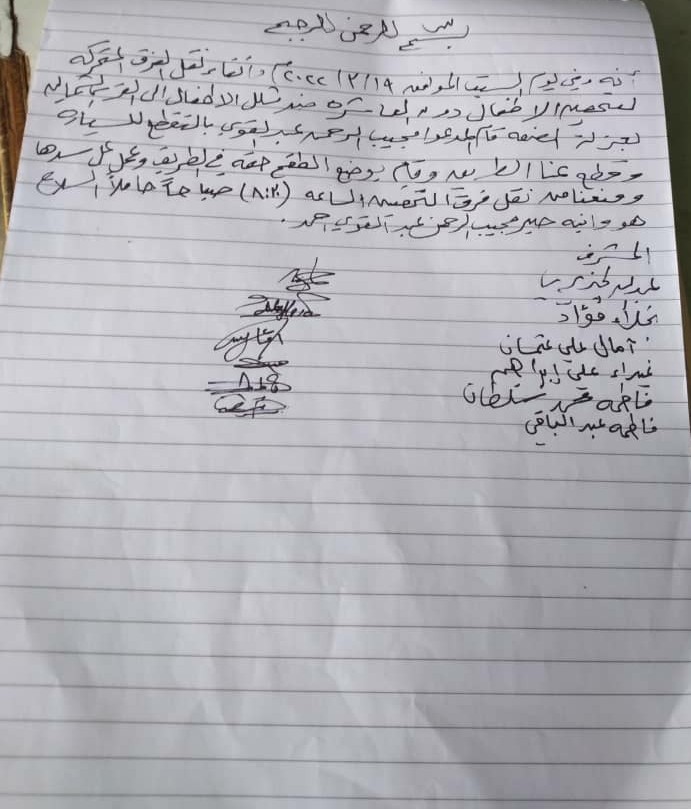 بسم الله الرحمن الرحيم
أنه وفي يوم السبت الموافق ١٩/٣/٢٠٢٢م وأثناء نقل الفرق المتحركة
لتحصين الاطفال دون العاشرة ضد شلل الاطفال الى القرى
لعزلة الضعة قام المدعوا مجيب الرحمن عبدالقوي بالتقطع للسيارة
وقطع عنا الطريق وقام بوضع الطقم حقه في الطريق وعمل على سدها
ومنعنا من نقل فرق التحصين الساعه (٨:٢٠) صباحاً حاملاً السلاح
هو وابنه مجيب الرحمن عبدالقوي احمد.
المشرف
نجلاء فؤاد
آمال علي عثمان
علي إبراهيم
فاطمه محمد سلطان
فاطمه عبدالباقي